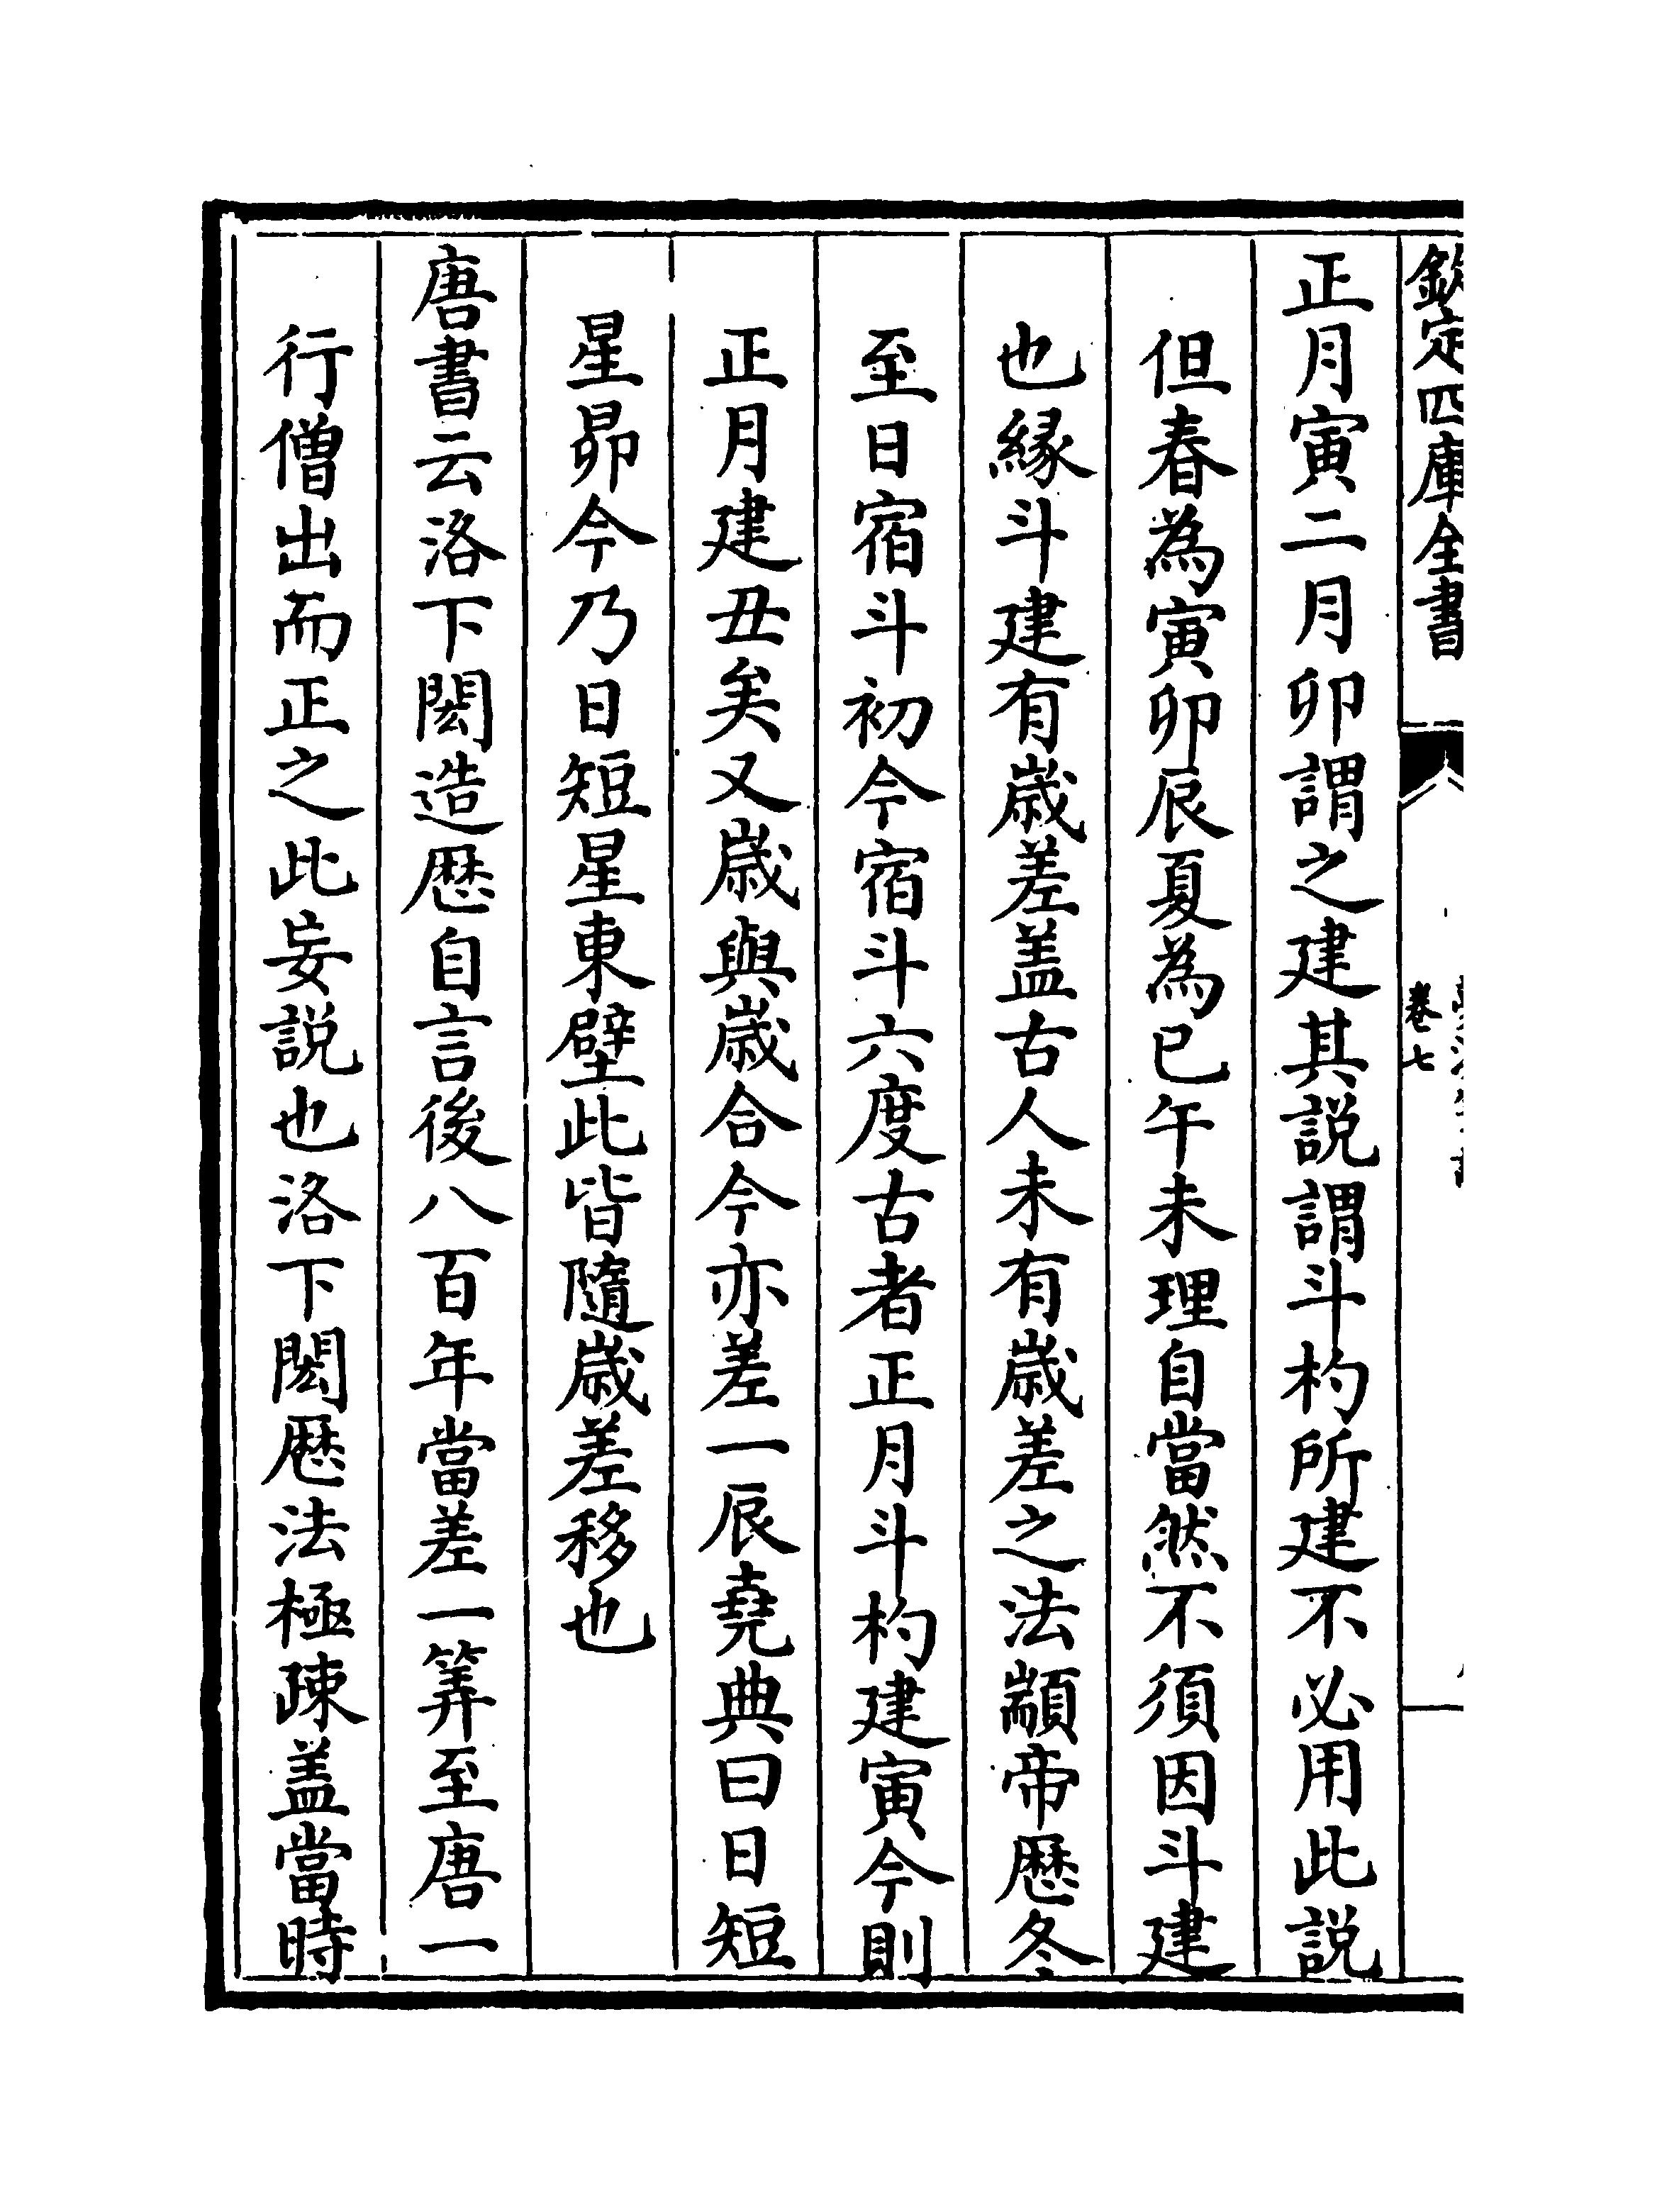 欽定四庫全書
卷七
正月寅二月卯謂之建其説謂斗杓所建不必用此説
但春為寅卯辰夏為已午未理自當然不須因斗建
也緣斗建有歳差盖古人未有歳差之法顓帝厯冬
至日宿斗初今宿斗六度古者正月斗杓建寅今則
正月建丑矣又歳與歳合今亦差一辰堯典曰日短
星昴今乃日短星東壁此皆隨歳差移也
唐書云洛下閎造厯自言後八百年當差一筭至唐一
行僧出而正之此妄説也洛下閎厯法極疎盖當時